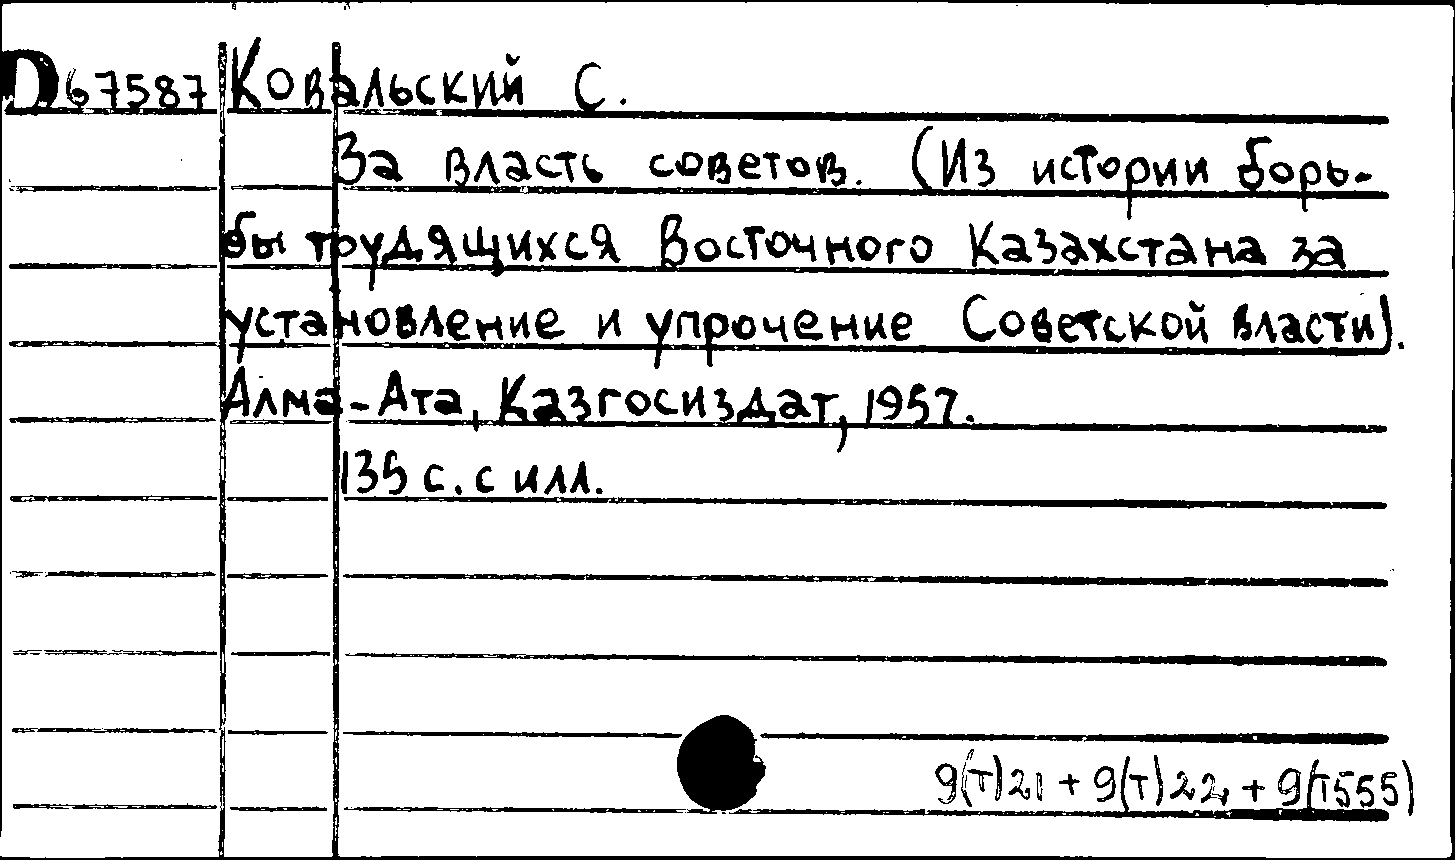 D 67587 Ковальский С.
За власть советов. (Из истории борь-
бы трудящихся Восточного Казахстана за
установление и упрочение Советской власти).
Алма-Ата, Казгосиздат, 1957.
135 с. с илл.
9(т)21 + 9(т)22 + 9(т555)